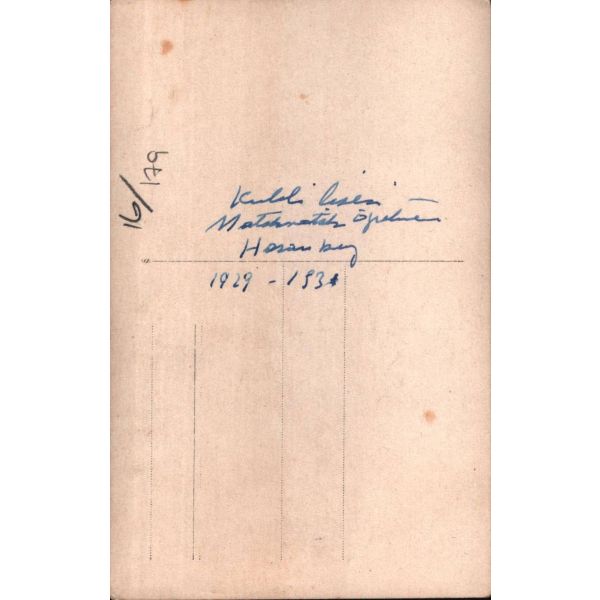 16/179
Kuleli lisesi
Matematik öğretmeni
Hasan bey
1929 - 1931